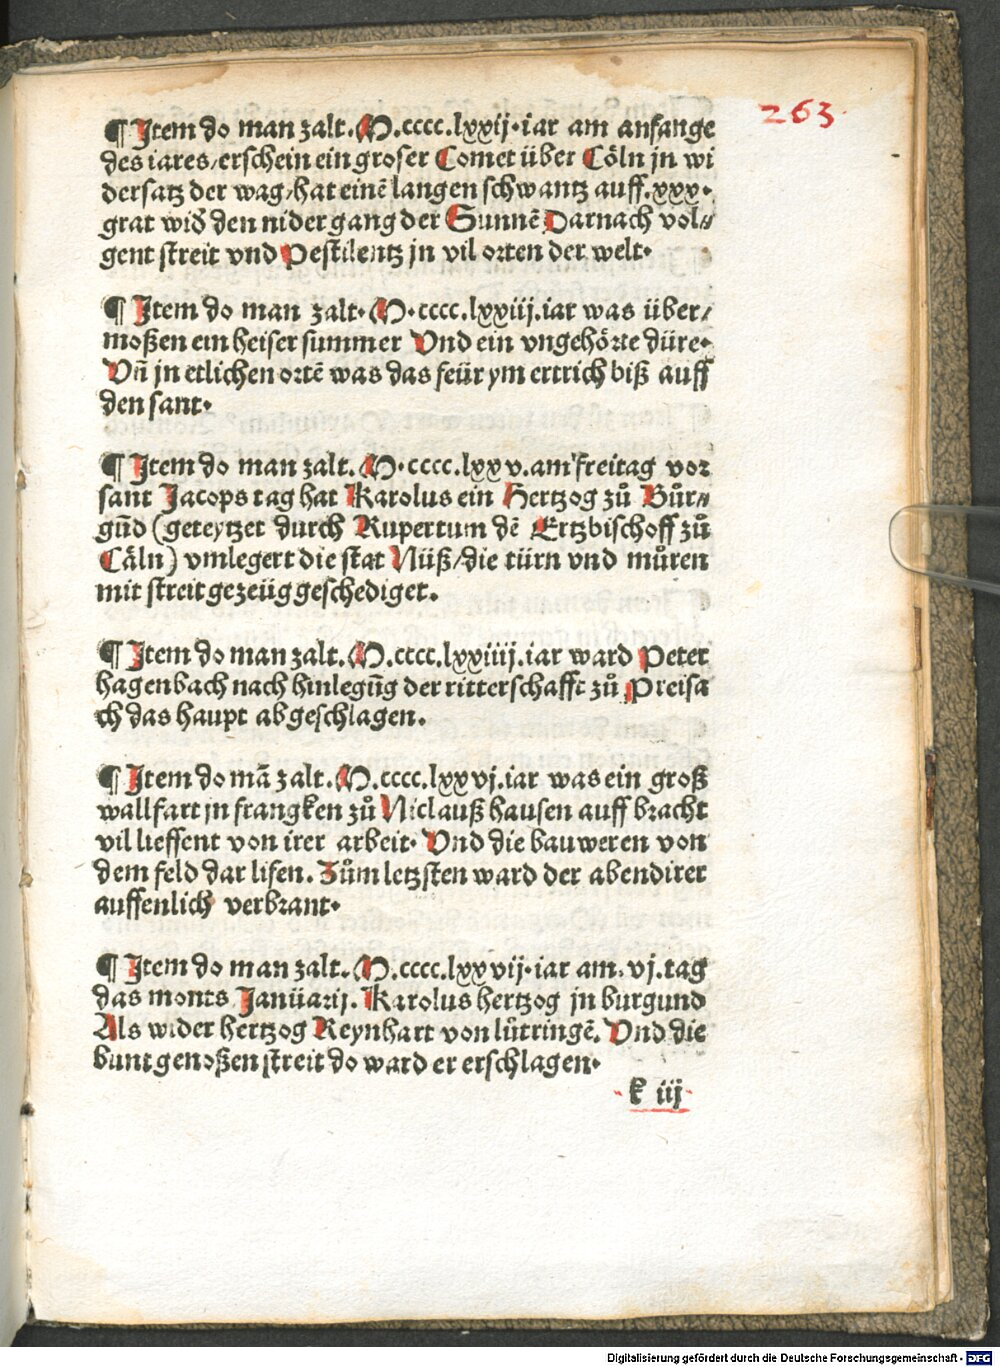 263.
¶ Item do man zalt. M.cccc.lxxij. iar am anfange
des iares/erschein ein groser Comet über Cöln jn wi
dersatz der wag/hat einē langen schwantz auff.xxx.
grat wid̄ den nidergang der Sunnē Darnach vol⸗
gent streit vnd Pestilentz jn vil orten der welt.
¶ Item do man zalt. M.cccc.lxxiij.iar was über/
moßen ein heiser summer Vnd ein vngehörte düre.
Vn̄ jn etlichen ortē was das feür ym ertrich biß auff
den sant.
¶ Item do man zalt. M.cccc.lxxv.am freitag vor
sant Jacops tag hat Karolus ein Hertzog zů Bůr⸗
gūd (geteytzet durch Rupertum dē Ertzbischoff zů
Cöln) vmlegert die stat Nüß/die türn vnd můren
mit streit gezeüg geschediget.
¶ Item do man zalt. M.cccc.lxxiiij.iar ward Peter
hagenbach nach hinlegūg der ritterschafft zů Preisa
ch das haupt abgeschlagen.
¶ Item do mā zalt. M.cccc.lxxvj.iar was ein groß
wallfart jn frangken zů Niclauß hausen auff bracht
vil lieffent von irer arbeit. Vnd die bauweren von
dem feld dar lifen. Zům letzsten ward der abendirer
auffenlich verbrant.
¶ Item do man zalt. M.cccc.lxxvij.iar am.vj.tag
das monts Januarij. Karolus hertzog jn burgund
Als wider hertzog Reynhart von lůtringē. Vnd die
buntgenoßen streit do ward er erschlagen.
k iij
Digitalisierung gefördert durch die Deutsche Forschungsgemeinschaft - DFG